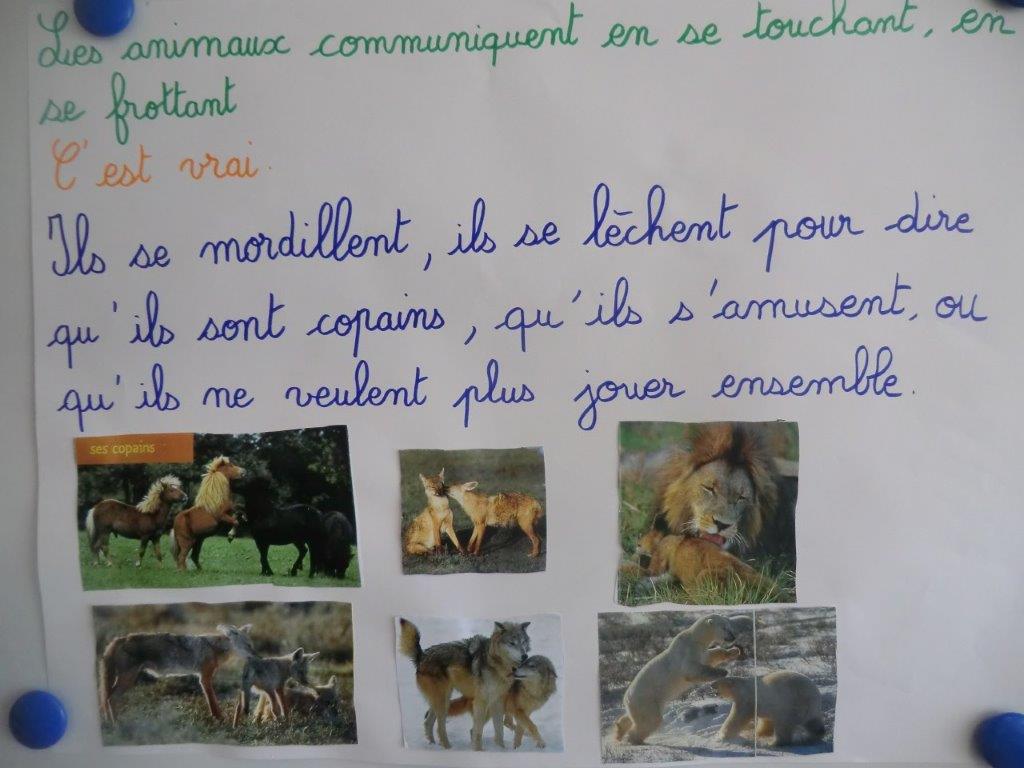 Les animaux communiquent en se touchant, en
se frottant
C'est vrai.
Ils se mordillent, ils se lèchent pour dire
qu'ils sont copains, qu'ils s'amusent, ou
qu'ils ne veulent plus jouer ensemble.
ses copains